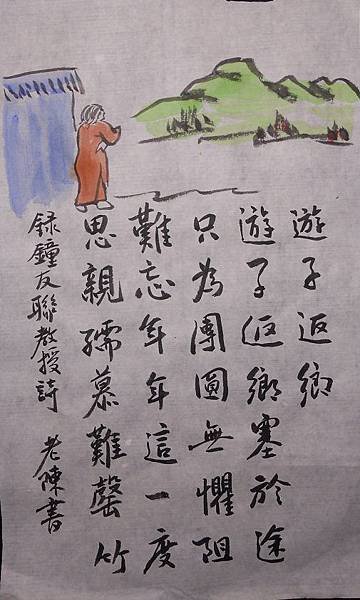 遊子返鄉
遊子返鄉塞於途
只為團圓無懼阻
難忘年年這一度
思親孺慕難罄竹
録鐘友聯教授詩 老陳書